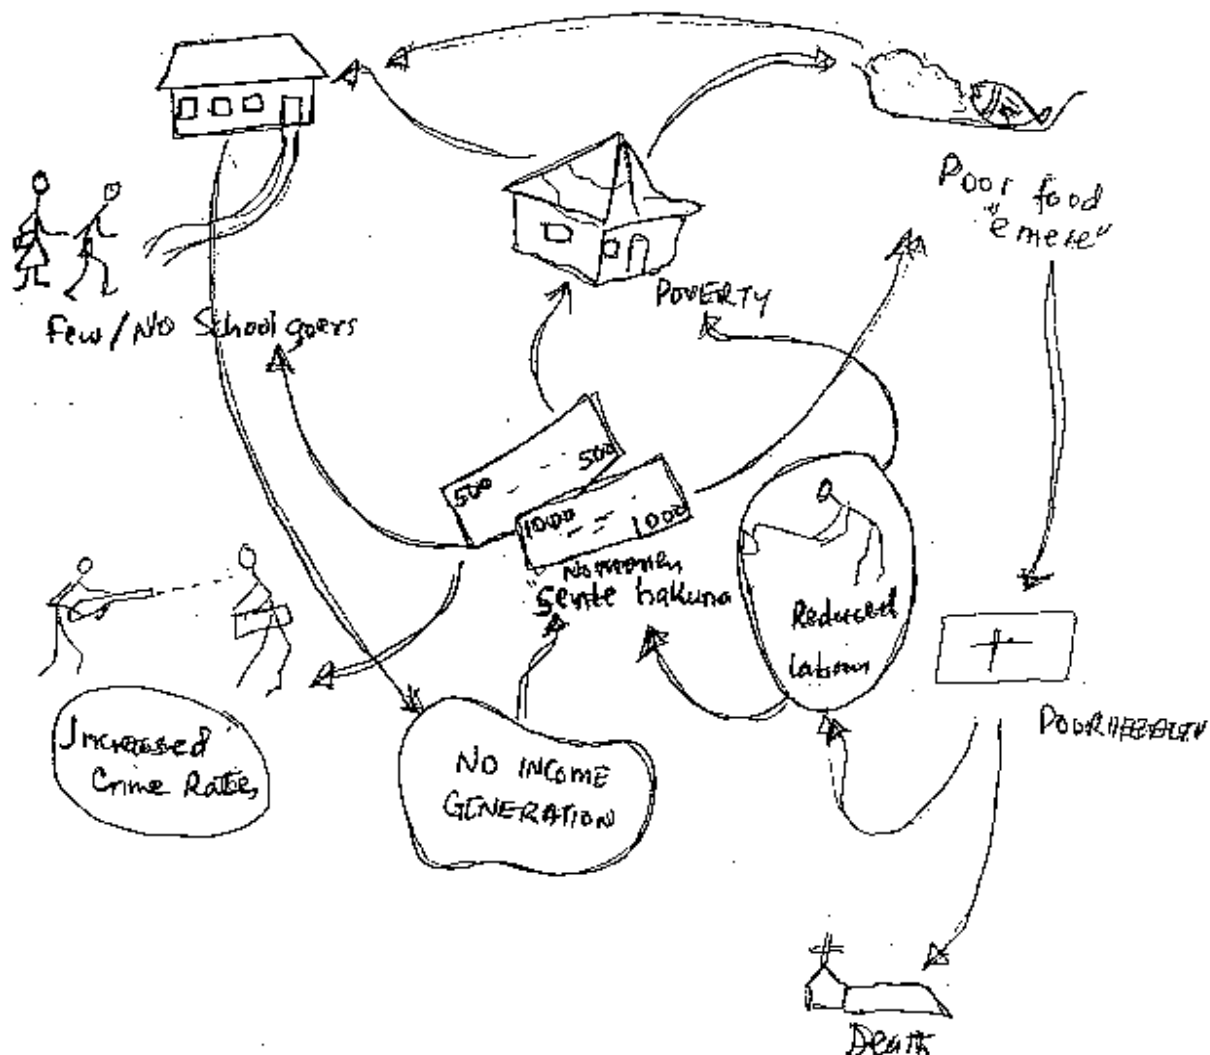 Poor food
"emere"
POVERTY
Few/No School goers
500 500
1000 1000
No money
"Sente hakuna
Reduced
labour
POOR HEALTH
Increased
Crime Rates
NO INCOME
GENERATION
Death